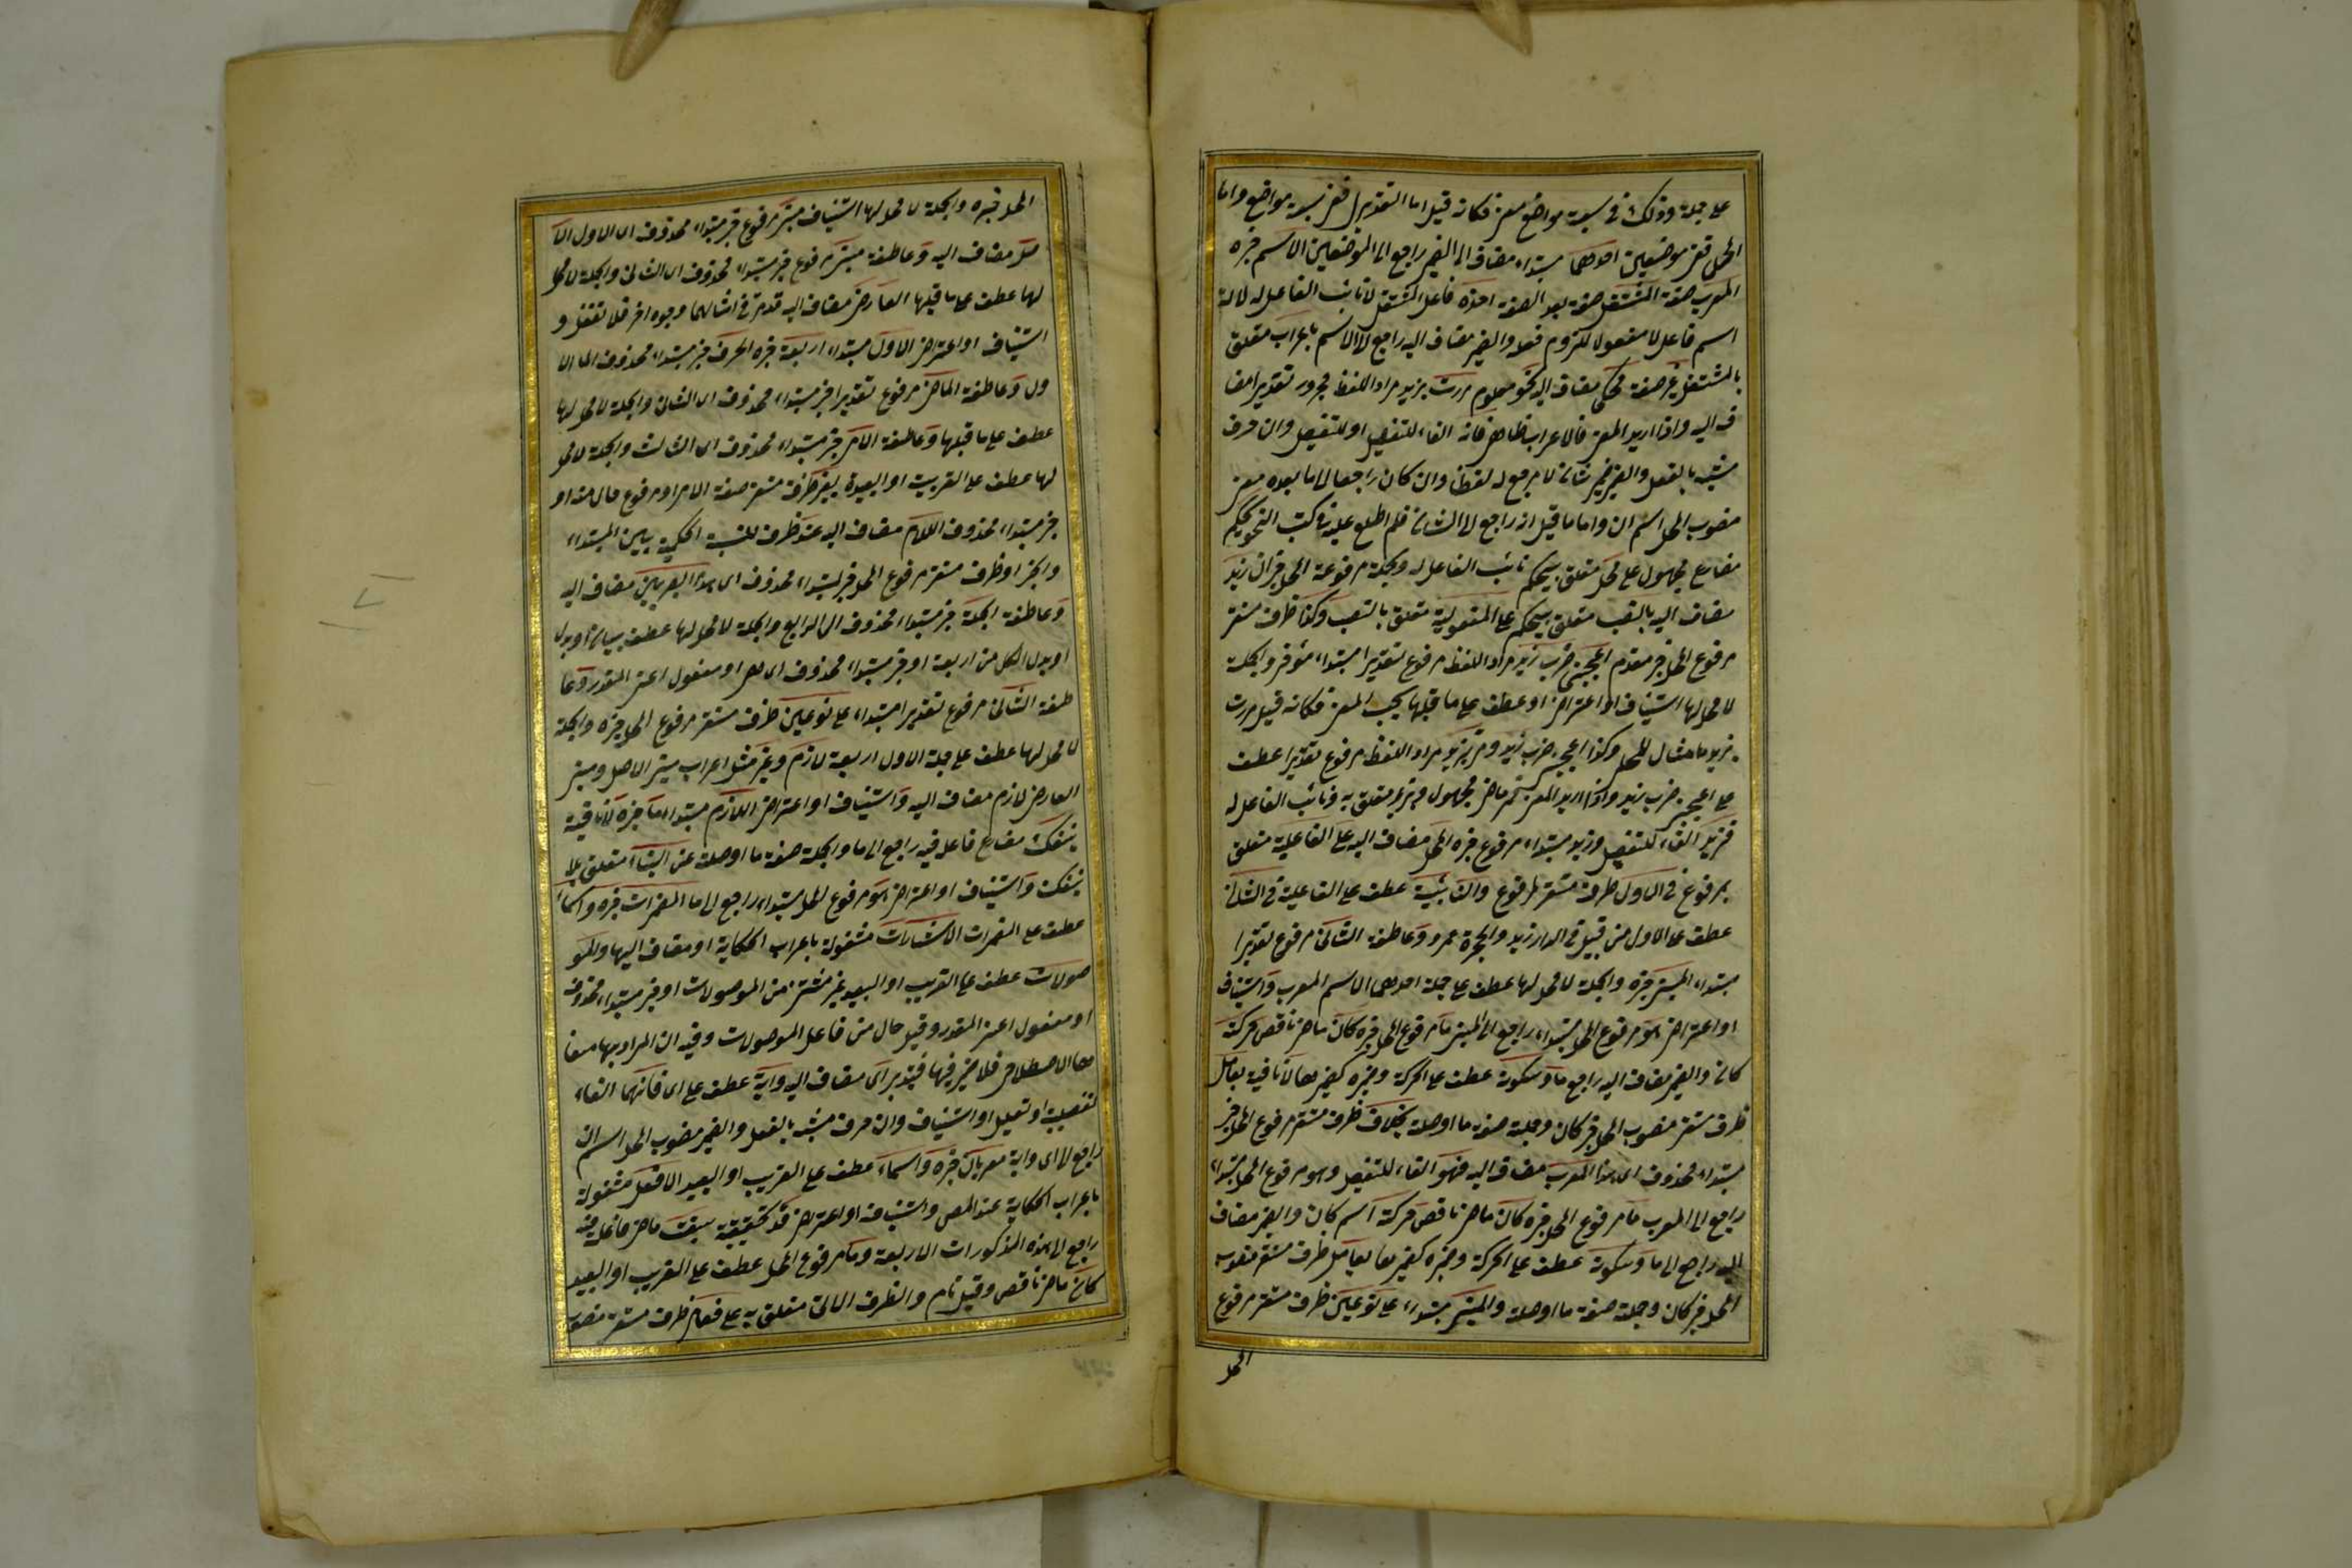 على جملة وذلك في سبعة مواضع معز فكانه قيل اما التقديرى ففي سبعة مواضع واما
المحلى ففى موضعين احدهما مبتداء مضاف الى الضمير راجع الى الموضعين الاسم خبره
المعرب صفة المشتغل صفة بعد الصفة اخره فاعل المشتغل لا نائب الفاعل له لانه
اسم فاعل لا مفعول للزوم فعله والضمير مضاف اليه راجع الى الاسم باعراب متعلق
بالمشتغل غير صفة محكى مضاف اليه نحو معلوم مررت بزيد مراد اللفظ مجرور تقديرا مضا
ف اليه واذا اريد المعنى فالاعراب ظاهر فانه الفاء للتفصيل او للتفصيل وان حرف
مشبه بالفعل والضمير ضمير شان لا مرجع له لفظا وان كان راجعا الى ما بعده معنى
منصوب المحل اسم ان واما ما قيل انه راجع الى الشان فلم اطلع عليه فى كتب النحو يحكم
مضارع مجهول على محل متعلق بيحكم نائب الفاعل له والجملة مرفوعة المحل خبر ان زيد
مضاف اليه بالنصب متعلق بيحكم على المفعولية متعلق بالنصب وكذا ظرف مستقر
مرفوع المحل خبر مقدم اعجبنى ضرب زيد مراد اللفظ مرفوع تقديرا مبتداء مؤخر والجملة
لا محل لها استيناف او اعتراض او عطف على ما قبلها بحسب المعنى فكانه قيل مررت
بزيد مثال للمحل وكذا اعجبنى ضرب زيد ومر بزيد مراد اللفظ مرفوع تقديرا عطف
على اعجبنى ضرب زيد واذا اريد المعنى فمر ماض مجهول وبزيد متعلق به ونائب الفاعل له
فزيد الفاء للتفصيل وزيد مبتداء مرفوع خبره المحل مضاف اليه على الفاعلية متعلق
بمرفوع فى الاول ظرف مستقر لمرفوع والنائبية عطف على الفاعلية فى الثانى
عطف على الاول من قبيل فى الدار زيد والحجرة عمرو وعاطفة الثانى مرفوع تقديرا
مبتداء المبنى خبره والجملة لا محل لها عطف على جملة احدهما الاسم المعرب واستيناف
او اعتراض هو مرفوع المحل مبتداء راجع الى المبنى ما مرفوع المحل خبره كان ماض ناقص حركة
كان والضمير مضاف اليه راجع ما وسكونه عطف على الحركة وضميره كضميرها لا نافية بعامل
ظرف مستقر منصوب المحل خبر كان وجملته صفة ما او صلة بخلاف ظرف مستقر مرفوع المحل خبر
مبتداء محذوف اى هذا المعرب مضاف اليه فهو الفاء للتفصيل وهو مرفوع المحل مبتداء
راجع الى المعرب ما مرفوع المحل خبره كان ماض ناقص حركته اسم كان والضمير مضاف
اليه راجع الى ما وسكونه عطف على الحركة وضميره كضميرها بعامل ظرف مستقر منصوب
المحل خبر كان وجملة صفة ما او صلة والمبنى مبتداء على نوعين ظرف مستقر مرفوع
المحل
المحل خبره والجملة لا محل لها استيناف مبنى مرفوع خبر مبتداء محذوف اى الاول الا
صل مضاف اليه وعاطفة مبنى مرفوع خبر مبتداء محذوف اى الثانى والجملة لا محل
لها عطف على ما قبلها العارض مضاف اليه قد مر فى امثالهما وجوه اخر فلا تغفل و
استيناف او اعتراض الاول مبتداء اربعة خبره الحرف خبر مبتداء محذوف اى الا
ول وعاطفة الماضى مرفوع تقديرا خبر مبتداء محذوف اى الثانى والجملة لا محل لها
عطف على ما قبلها وعاطفة الامر خبر مبتداء محذوف اى الثالث والجملة لا محل
لها عطف على القريبة او البعيدة بغير ظرف مستقر صفة الامر او مرفوع حال منه او
خبر مبتداء محذوف اللام مضاف اليه عند ظرف للنسبة الحكمية بين المبتداء
والخبر او ظرف مستقر مرفوع المحل خبر لمبتداء محذوف اى هذا البصريين مضاف اليه
وعاطفة الجملة خبر مبتداء محذوف اى الرابع والجملة لا محل لها عطف بيان او بدل
او بدل الكل من اربعة او خبر مبتداء محذوف اى هى او مفعول اعنى المقدر وعا
طفة الثانى مرفوع تقديرا مبتداء على نوعين ظرف مستقر مرفوع المحل خبره والجملة
لا محل لها عطف على جملة الاول اربعة لازم وغير مثل اعراب مبنى الاصل ومبنى
العارض لازم مضاف اليه واستيناف او اعتراض اللازم مبتداء ما خبره لا نافية
ينفك مضارع فاعله فيه راجع الى ما والجملة صفة ما او صلة عن البناء متعلق بلا
ينفك واستيناف او اعتراض هو مرفوع المحل مبتداء راجع الى ما المضمرات خبره واسماء
عطف على المضمرات الاشارات مشغولة باعراب الحكاية او مضاف اليها والمو
صولات عطف على القريب او البعيد غير مستثنى من الموصولات او خبر مبتداء محذوف
او مفعول اعنى المقدر وقيل حال من فاعل الموصولات وفيه ان المراد بها معنا
ها الاصطلاحى فلا ضمير فيها فتدبر اى مضاف اليه واية عطف على اى فانهما الفاء
تفصيلية او تعليل او استيناف وان حرف مشبه بالفعل والضمير منصوب المحل اسم ان
راجع الى اى واية معربان خبره واسماء عطف على القريب او البعيد الافعال مشغولة
باعراب الحكاية عند المص واستيناف او اعتراض قد تحقيقية سبقت ماض فاعله فيه
راجع الى هذه المذكورات الاربعة وما مرفوع المحل عطف على القريب او البعيد
كان ماض ناقص وقيل تام والظرف الاتى متعلق به على فعال ظرف مستقر منصوب